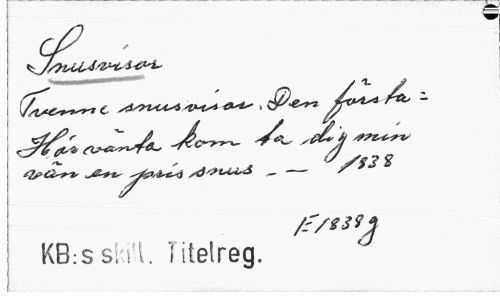 Snusvisor
Tvenne snusvisor. Den första =
Hör vänta kom ta dig min
vän en pris snus - — 1838
E1838g
KB:s skill. Titelreg.